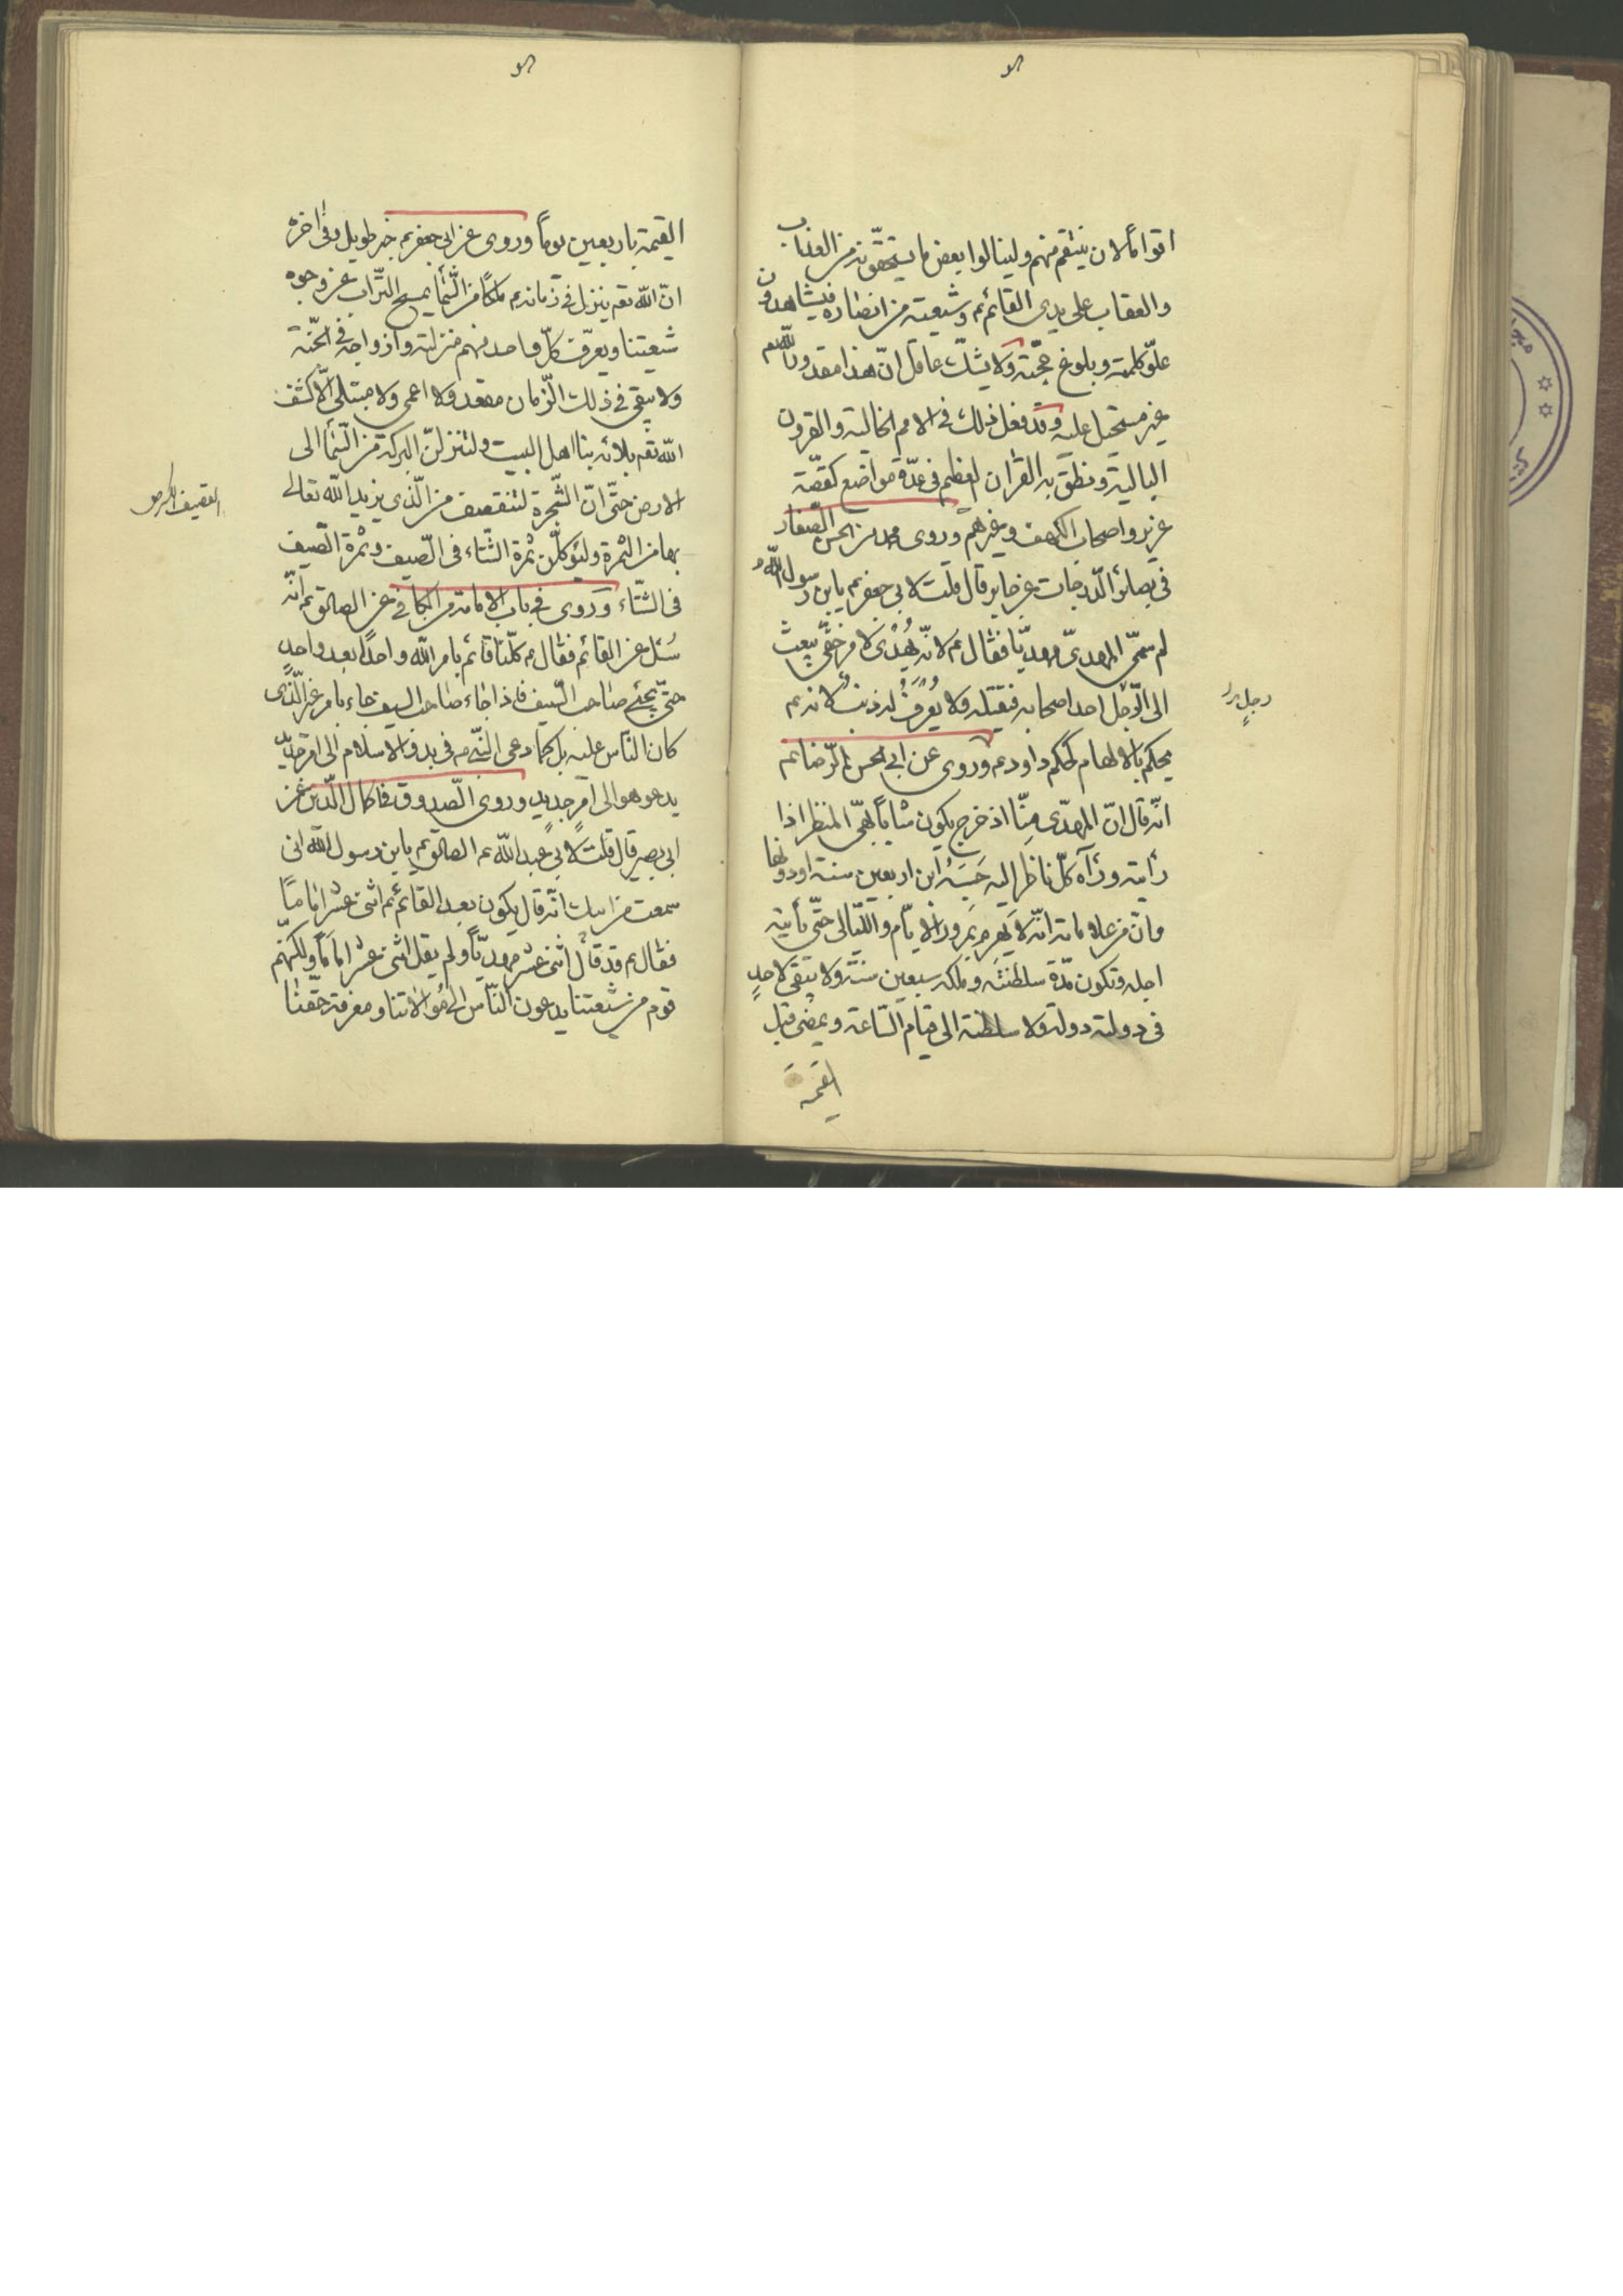 اقواماً لان ينتقم منهم ولينالوا بعض ما يستحقّونه من العذاب
والعقاب على يدى القائم عم وشيعته من انصاره فيشاهدون
علوّ كلمته وبلوغ حجّته ولا يشكّ عاقل انّ هذا مقدور لله تعم
غير مستحيل عليه وقد فعل ذلك فى الامم الخالية والقرون
البالية ونطق به القران العظيم فى عدّة مواضع كقصّة
عزير واصحاب الكهف وغيرهم وروى محمد بن الحسن الصّفار
فى بصائر الدّرجات عن جابر قال قلت لابى جعفر عم يابن رسول الله
لم سمّى المهدىّ مهديّا فقال عم لانّه يُهْدى لامر خفىّ يبعث
الى الرّجل احد اصحابه فيقتله ولا يُعْرَفُ له ذنب لانه عم
يحكم بالالهام كحكم داود عم وروى عن ابى الحسن الرّضا عم
انّه قال انّ المهدّى منّا اذ خرج يكون شاباً بهىّ المنظر اذا
رأيته ورآه كلّ ناظر اليه حَسَبَهُ ابن اربعين سنة او دونها
وانّ من علاماته انّه لا يَهرم بمرور الايّام واللّيالى حتّى يأتيه
اجله وتكون مدّة سلطنته وملكه سبعين سنة ولا يبقى لاحدٍ
فى دولته دولة ولا سلطنة الى قيام السّاعة ويمضى قبل
القيمة
رجل
القيمة باربعين يوماً وروى عن ابى جعفر عم خبر طويل وفى اخره
انّ الله تعم ينزل فى زمانه عم ملكاً من السّما يمسح التّراب عن وجوه
شيعتنا ويعرّف كلّ واحد منهم منزلته وازواجه فى الجنّة
ولا يبقى فى ذلك الزّمان مقعد ولا اعمى ولا مبتلى الّا كشف
الله تعم بلائه بنا اهل البيت ولتنزلنّ البركة من السّما الى
الارض حتّى انّ الشّجرة لتنقصف من الّذى يزيد الله تعالى
بها من الثمرة وليؤكلّن ثمرة الشّتاء فى الصّيف وثمرة الصّيف
فى الشّتاء وروى فى باب الامامة من الكافى عن الصادق عم انّه
سُئل عن القائم فقال عم كلّنا قائم بامر الله واحداً بعد واحدٍ
حتّى يجئ صاحب السّيف فاذا جاء صاحب السيف جاء بامر غير الّذى
كان النّاس عليه بل كما دعى النّبى ص فى بدو الاسلام الى امر جديد
يدعو هو الى امر جديد وروى الصّدوق فى اكمال الدّين عن
ابى بصير قال قلت لابى عبد الله عم الصادق عم يابن رسول الله انى
سمعت من ابيك انّه قال يكون بعد القائم عم اثنى عشر اماماً
فقال عم قد قال اثنى عشر مهديّاً ولم يقل اثنى عشر اماماً ولكنّهم
قوم من شيعتنا يدعون النّاس الى موالاتنا ومعرفة حقّنا